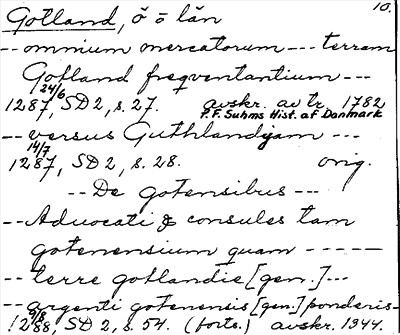 10.
Gotland, ö o län
-- omnium mercatorum --- terram
Gotland freqventantium ---
24/6
1287, SD 2, s. 27. avskr. av tr. 1782
P.F. Suhms Hist. af Danmark
-- versus Guthlandiam ---
14/7
1287, SD 2, s. 28. orig.
-- De gotensibus ---
-- Aduocati & consules tam
gotenensium quam -----
-- terre gotlandie [gen.] ---
-- argenti gotenensis [gen.] ponderis -
9/8
1288, SD 2, s. 54. (forts.) avskr. 1344.